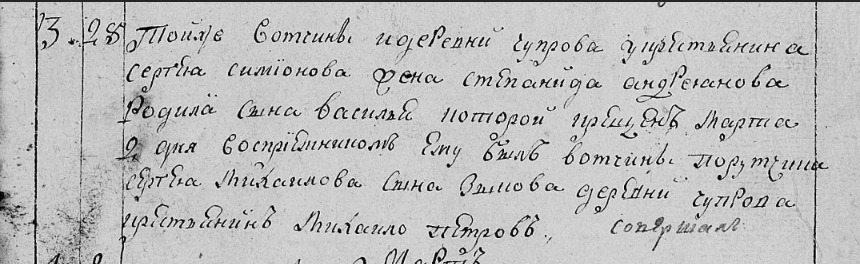 3. 28 Тоийже вотчины идеревни чупрова укрестьянина
сергѣа симионова жена степанида андреианова
родила сына василья которой крещенъ марта
2 дня восприемникомъ ему былъ вотчины порутчика
сергѣа михаилова сына зыкова деревни чупрова
крестьянинъ михаило петровъ., совершал
Мартъ